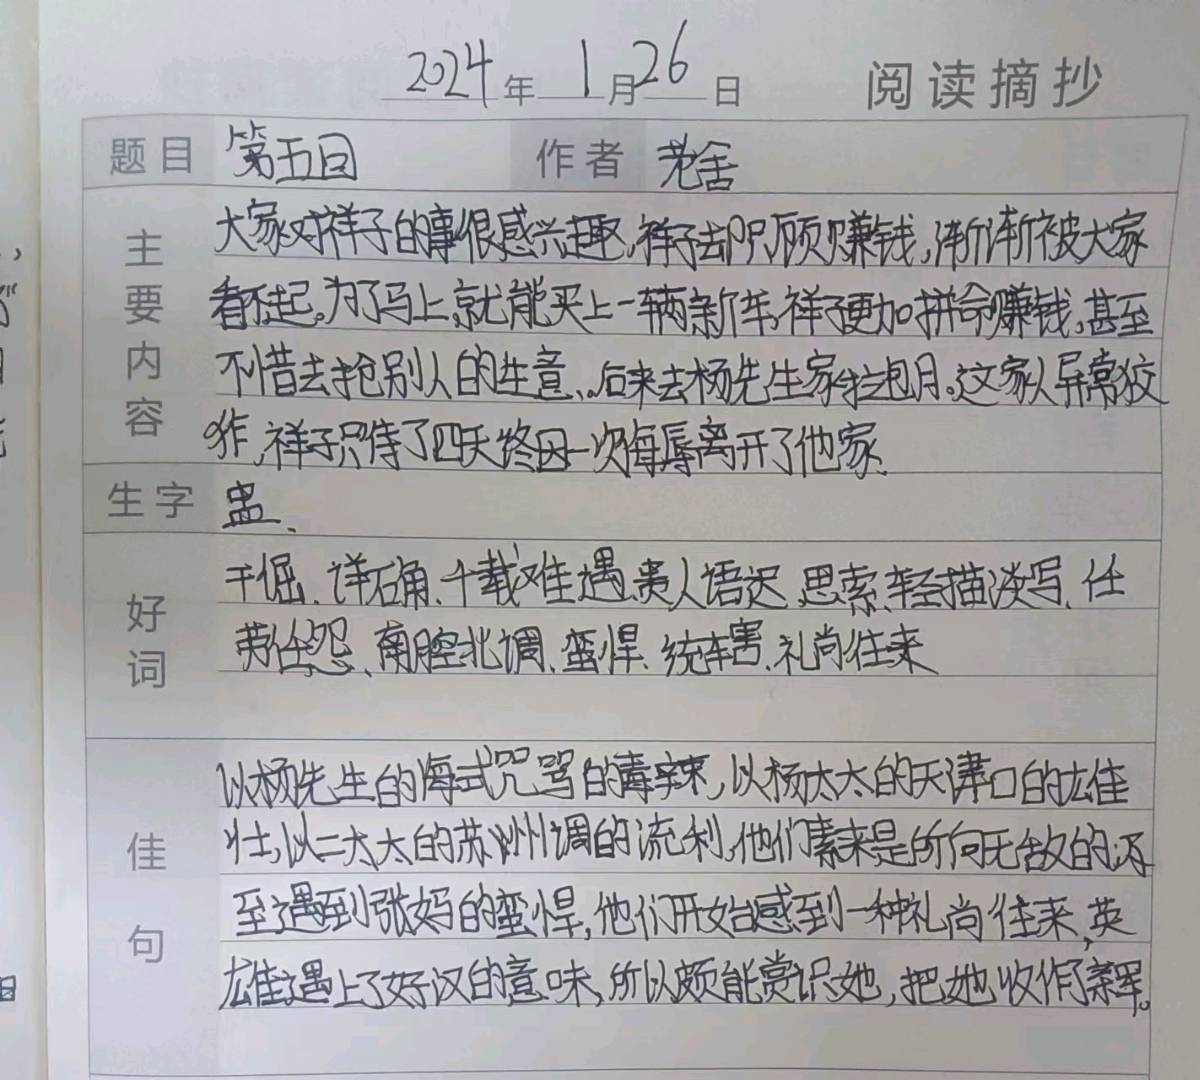 2024年1月26日 阅读摘抄
题目 第五回 作者 老舍
主要内容
大家对祥子的事很感兴趣,祥子去只顾赚钱,渐渐被大家
看不起。为了马上就能买上一辆新车,祥子更加拼命赚钱,甚至
不惜去抢别人的生意、。后来去杨先生家拉包月。这家人异常狡
诈,祥子只待了四天终因一次侮辱离开了他家.
生字 盅、
好词
干倔、详确、千载难遇、贵人语迟、思索、轻描淡写、任
劳任怨、南腔北调、蛮悍、统辖、礼尚往来
佳句
以杨先生的海式咒骂的毒辣,以杨太太的天津口的雄
壮,以二太太的苏州调的流利,他们素来是所向无敌的;及
至遇到张妈的蛮悍,他们开始感到一种礼尚往来,英
雄遇上了好汉的意味,所以颇能赏识她,把她收作了亲军。